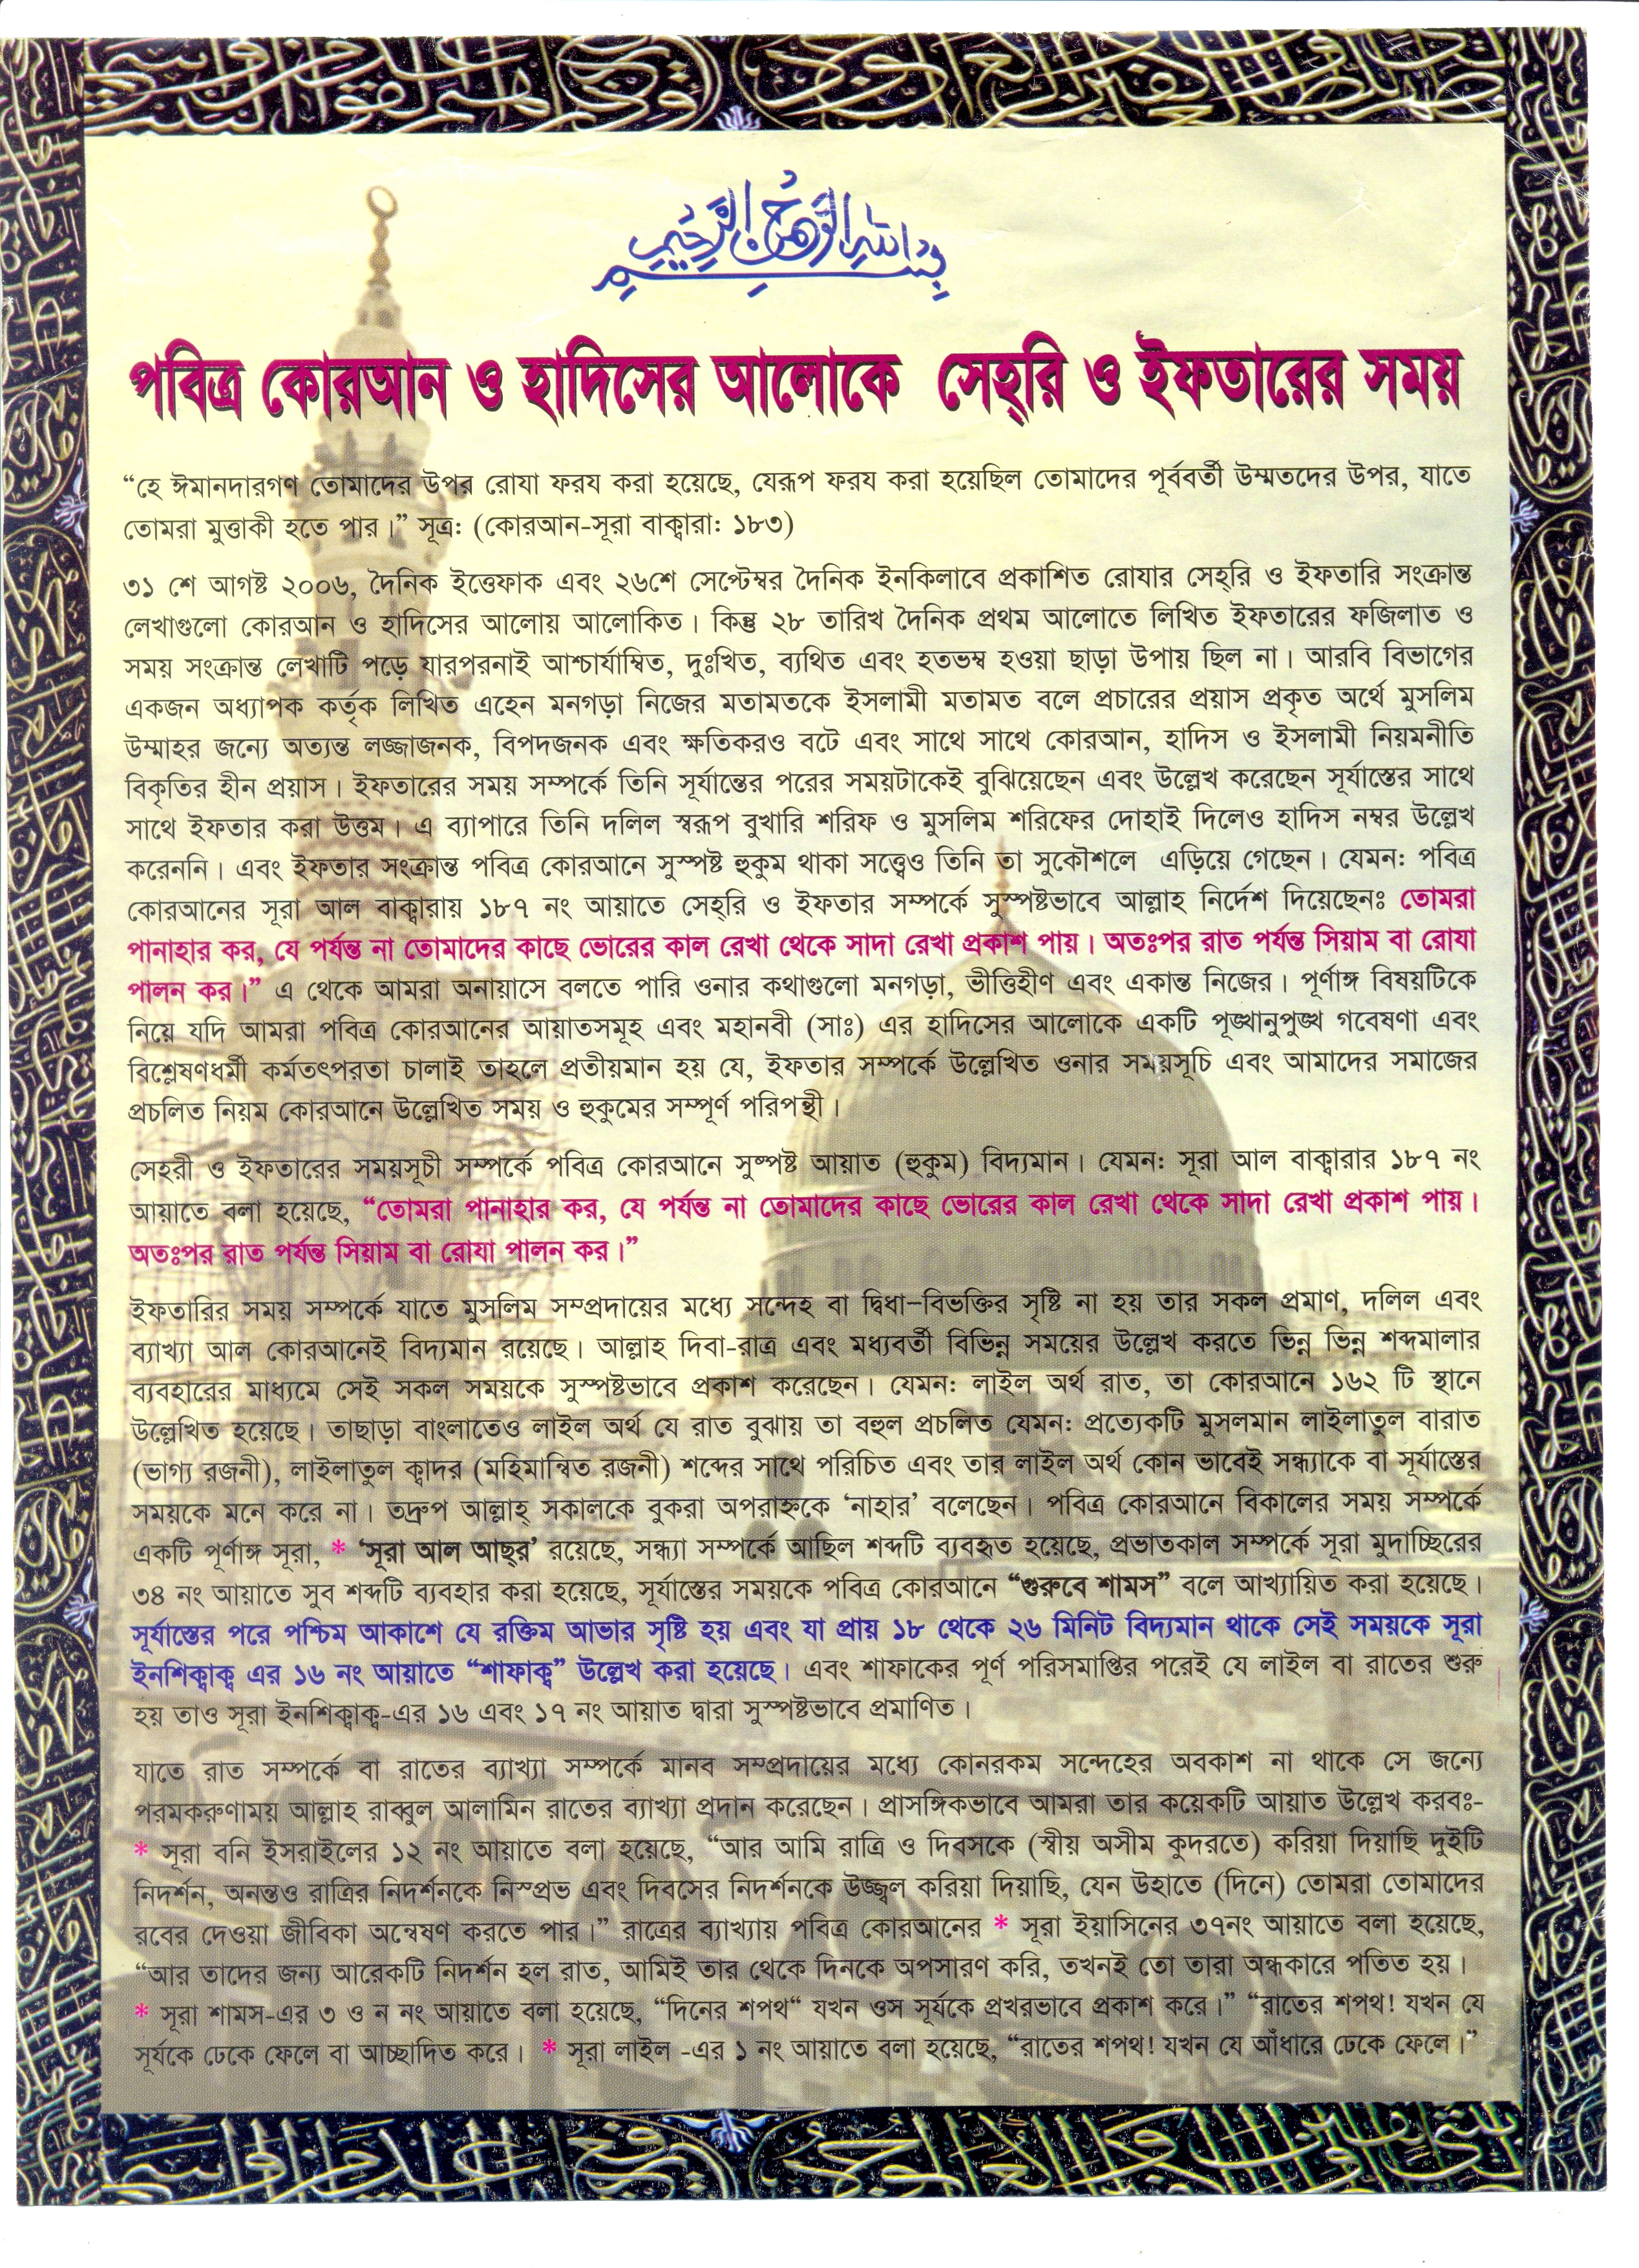 بسم الله الرحمن الرحيم
পবিত্র কোরআন ও হাদিসের আলোকে সেহ্‌রি ও ইফতারের সময়
“হে ঈমানদারগণ তোমাদের উপর রোযা ফরয করা হয়েছে, যেরূপ ফরয করা হয়েছিল তোমাদের পূর্ববর্তী উম্মতদের উপর, যাতে
তোমরা মুত্তাকী হতে পার।” সূত্র: (কোরআন-সূরা বাক্বারা: ১৮৩)
৩১ শে আগষ্ট ২০০৬, দৈনিক ইত্তেফাক এবং ২৬শে সেপ্টেম্বর দৈনিক ইনকিলাবে প্রকাশিত রোযার সেহ্‌রি ও ইফতারি সংক্রান্ত
লেখাগুলো কোরআন ও হাদিসের আলোয় আলোকিত। কিন্তু ২৮ তারিখ দৈনিক প্রথম আলোতে লিখিত ইফতারের ফজিলাত ও
সময় সংক্রান্ত লেখাটি পড়ে যারপরনাই আশ্চার্যাম্বিত, দুঃখিত, ব্যথিত এবং হতভম্ব হওয়া ছাড়া উপায় ছিল না। আরবি বিভাগের
একজন অধ্যাপক কর্তৃক লিখিত এহেন মনগড়া নিজের মতামতকে ইসলামী মতামত বলে প্রচারের প্রয়াস প্রকৃত অর্থে মুসলিম
উম্মাহর জন্যে অত্যন্ত লজ্জাজনক, বিপদজনক এবং ক্ষতিকরও বটে এবং সাথে সাথে কোরআন, হাদিস ও ইসলামী নিয়মনীতি
বিকৃতির হীন প্রয়াস। ইফতারের সময় সম্পর্কে তিনি সূর্যাস্তের পরের সময়টাকেই বুঝিয়েছেন এবং উল্লেখ করেছেন সূর্যাস্তের সাথে
সাথে ইফতার করা উত্তম। এ ব্যাপারে তিনি দলিল স্বরূপ বুখারি শরিফ ও মুসলিম শরিফের দোহাই দিলেও হাদিস নম্বর উল্লেখ
করেননি। এবং ইফতার সংক্রান্ত পবিত্র কোরআনে সুস্পষ্ট হুকুম থাকা সত্ত্বেও তিনি তা সুকৌশলে এড়িয়ে গেছেন। যেমন: পবিত্র
কোরআনের সূরা আল বাক্বারায় ১৮৭ নং আয়াতে সেহ্‌রি ও ইফতার সম্পর্কে সুস্পষ্টভাবে আল্লাহ নির্দেশ দিয়েছেনঃ তোমরা
পানাহার কর, যে পর্যন্ত না তোমাদের কাছে ভোরের কাল রেখা থেকে সাদা রেখা প্রকাশ পায়। অতঃপর রাত পর্যন্ত সিয়াম বা রোযা
পালন কর।” এ থেকে আমরা অনায়াসে বলতে পারি ওনার কথাগুলো মনগড়া, ভীত্তিহীণ এবং একান্ত নিজের। পূর্ণাঙ্গ বিষয়টিকে
নিয়ে যদি আমরা পবিত্র কোরআনের আয়াতসমূহ এবং মহানবী (সাঃ) এর হাদিসের আলোকে একটি পূঙ্খানুপুঙ্খ গবেষণা এবং
বিশ্লেষণধর্মী কর্মতৎপরতা চালাই তাহলে প্রতীয়মান হয় যে, ইফতার সম্পর্কে উল্লেখিত ওনার সময়সূচি এবং আমাদের সমাজের
প্রচলিত নিয়ম কোরআনে উল্লেখিত সময় ও হুকুমের সম্পূর্ণ পরিপন্থী।
সেহরী ও ইফতারের সময়সূচী সম্পর্কে পবিত্র কোরআনে সুষ্পষ্ট আয়াত (হুকুম) বিদ্যমান। যেমন: সূরা আল বাক্বারার ১৮৭ নং
আয়াতে বলা হয়েছে, “তোমরা পানাহার কর, যে পর্যন্ত না তোমাদের কাছে ভোরের কাল রেখা থেকে সাদা রেখা প্রকাশ পায়।
অতঃপর রাত পর্যন্ত সিয়াম বা রোযা পালন কর।”
ইফতারির সময় সম্পর্কে যাতে মুসলিম সম্প্রদায়ের মধ্যে সন্দেহ বা দ্বিধা-বিভক্তির সৃষ্টি না হয় তার সকল প্রমাণ, দলিল এবং
ব্যাখ্যা আল কোরআনেই বিদ্যমান রয়েছে। আল্লাহ দিবা-রাত্র এবং মধ্যবর্তী বিভিন্ন সময়ের উল্লেখ করতে ভিন্ন ভিন্ন শব্দমালার
ব্যবহারের মাধ্যমে সেই সকল সময়কে সুস্পষ্টভাবে প্রকাশ করেছেন। যেমন: লাইল অর্থ রাত, তা কোরআনে ১৬২ টি স্থানে
উল্লেখিত হয়েছে। তাছাড়া বাংলাতেও লাইল অর্থ যে রাত বুঝায় তা বহুল প্রচলিত যেমন: প্রত্যেকটি মুসলমান লাইলাতুল বারাত
(ভাগ্য রজনী), লাইলাতুল ক্বাদর (মহিমান্বিত রজনী) শব্দের সাথে পরিচিত এবং তার লাইল অর্থ কোন ভাবেই সন্ধ্যাকে বা সূর্যাস্তের
সময়কে মনে করে না। তদ্রুপ আল্লাহ্‌ সকালকে বুকরা অপরাহ্নকে ‘নাহার’ বলেছেন। পবিত্র কোরআনে বিকালের সময় সম্পর্কে
একটি পূর্ণাঙ্গ সূরা, * ‘সূরা আল আছ্‌র’ রয়েছে, সন্ধ্যা সম্পর্কে আছিল শব্দটি ব্যবহৃত হয়েছে, প্রভাতকাল সম্পর্কে সূরা মুদাচ্ছিরের
৩৪ নং আয়াতে সুব শব্দটি ব্যবহার করা হয়েছে, সূর্যাস্তের সময়কে পবিত্র কোরআনে “গুরুবে শামস” বলে আখ্যায়িত করা হয়েছে।
সূর্যাস্তের পরে পশ্চিম আকাশে যে রক্তিম আভার সৃষ্টি হয় এবং যা প্রায় ১৮ থেকে ২৬ মিনিট বিদ্যমান থাকে সেই সময়কে সূরা
ইনশিক্বাক্ব এর ১৬ নং আয়াতে “শাফাক্ব” উল্লেখ করা হয়েছে। এবং শাফাকের পূর্ণ পরিসমাপ্তির পরেই যে লাইল বা রাতের শুরু
হয় তাও সূরা ইনশিক্বাক্ব-এর ১৬ এবং ১৭ নং আয়াত দ্বারা সুস্পষ্টভাবে প্রমাণিত।
যাতে রাত সম্পর্কে বা রাতের ব্যাখ্যা সম্পর্কে মানব সম্প্রদায়ের মধ্যে কোনরকম সন্দেহের অবকাশ না থাকে সে জন্যে
পরমকরুণাময় আল্লাহ রাব্বুল আলামিন রাতের ব্যাখ্যা প্রদান করেছেন। প্রাসঙ্গিকভাবে আমরা তার কয়েকটি আয়াত উল্লেখ করবঃ-
* সূরা বনি ইসরাইলের ১২ নং আয়াতে বলা হয়েছে, “আর আমি রাত্রি ও দিবসকে (স্বীয় অসীম কুদরতে) করিয়া দিয়াছি দুইটি
নিদর্শন, অনন্তও রাত্রির নিদর্শনকে নিস্প্রভ এবং দিবসের নিদর্শনকে উজ্জ্বল করিয়া দিয়াছি, যেন উহাতে (দিনে) তোমরা তোমাদের
রবের দেওয়া জীবিকা অন্বেষণ করতে পার।” রাত্রের ব্যাখ্যায় পবিত্র কোরআনের * সূরা ইয়াসিনের ৩৭নং আয়াতে বলা হয়েছে,
“আর তাদের জন্য আরেকটি নিদর্শন হল রাত, আমিই তার থেকে দিনকে অপসারণ করি, তখনই তো তারা অন্ধকারে পতিত হয়।
* সূরা শামস-এর ৩ ও ন নং আয়াতে বলা হয়েছে, “দিনের শপথ“ যখন ওস সূর্যকে প্রখরভাবে প্রকাশ করে।” “রাতের শপথ! যখন যে
সূর্যকে ঢেকে ফেলে বা আচ্ছাদিত করে। * সূরা লাইল -এর ১ নং আয়াতে বলা হয়েছে, “রাতের শপথ! যখন যে আঁধারে ঢেকে ফেলে।”